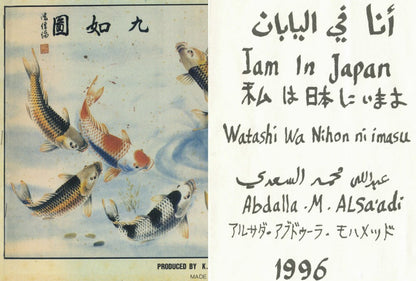 九如圖
PRODUCED BY K.
MADE
أنا في اليابان
Iam In Japan
私は日本にいまよ
Watashi Wa Nihon ni imasu
عبدالله محمد السعدي
Abdalla .M. ALSa'adi
アルサダ・アブドゥーラ・モハメッド
1996